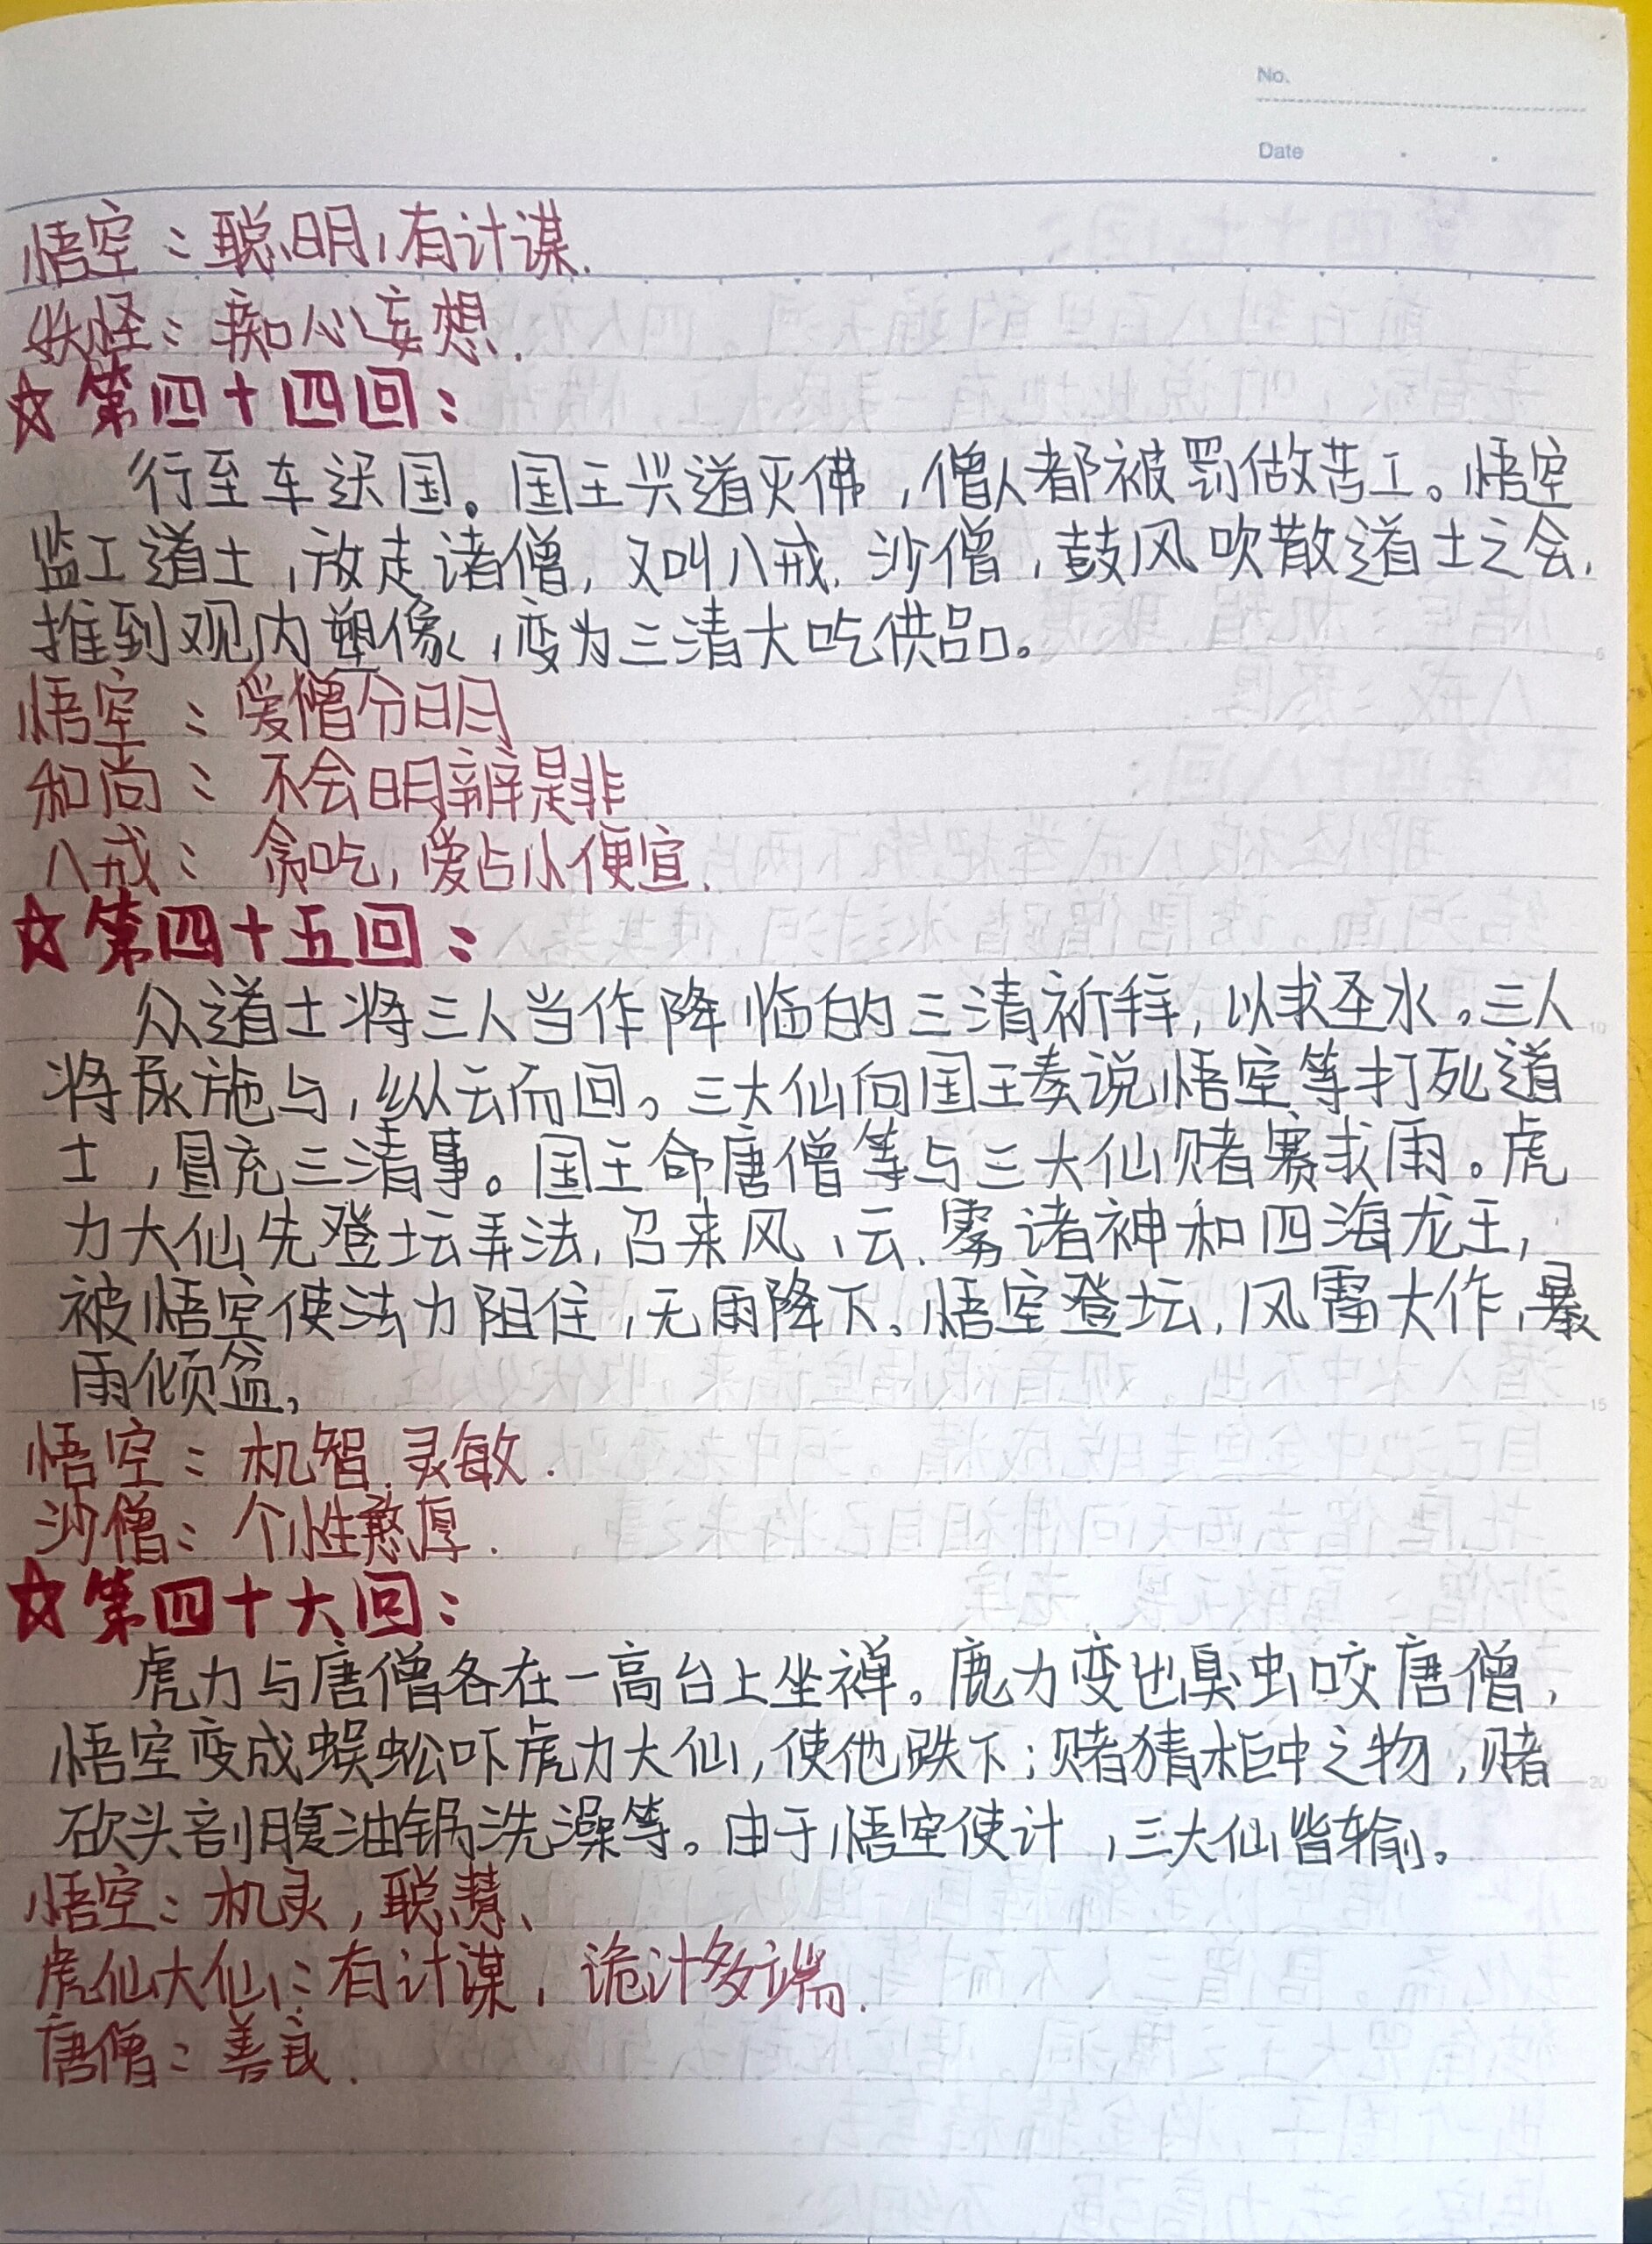 No.
Date
悟空：聪明，有计谋.
妖怪：痴心妄想.
☆第四十四回：
行至车迟国。国王兴道灭佛，僧人都被罚做苦工。悟空
监工道士，放走诸僧，又叫八戒.沙僧，鼓风吹散道士之会.
推到观内塑像，变为三清大吃供品。
悟空：爱憎分明
和尚：不会明辨是非
八戒：贪吃，爱占小便宜.
☆第四十五回：
众道士将三人当作降临的三清祈拜，以求圣水。三人
将尿施与，纵云而回。三大仙向国王奏说悟空等打死道
士，冒充三清事。国王命唐僧等与三大仙赌赛求雨。虎
力大仙先登坛弄法，召来风，云.雾诸神和四海龙王，
被悟空使法力阻住，无雨降下。悟空登坛，风雷大作，暴
雨倾盆，
悟空：机智.灵敏.
沙僧：个性憨厚.
☆第四十六回：
虎力与唐僧各在一高台上坐禅。鹿力变出臭虫咬唐僧，
悟空变成蜈蚣吓虎力大仙，使他跌下；赌猜柜中之物，赌
砍头剖腹油锅洗澡等。由于悟空使计，三大仙皆输。
悟空：机灵，聪慧、
虎仙大仙：有计谋，诡计多端.
唐僧：善良.
5
10
15
20